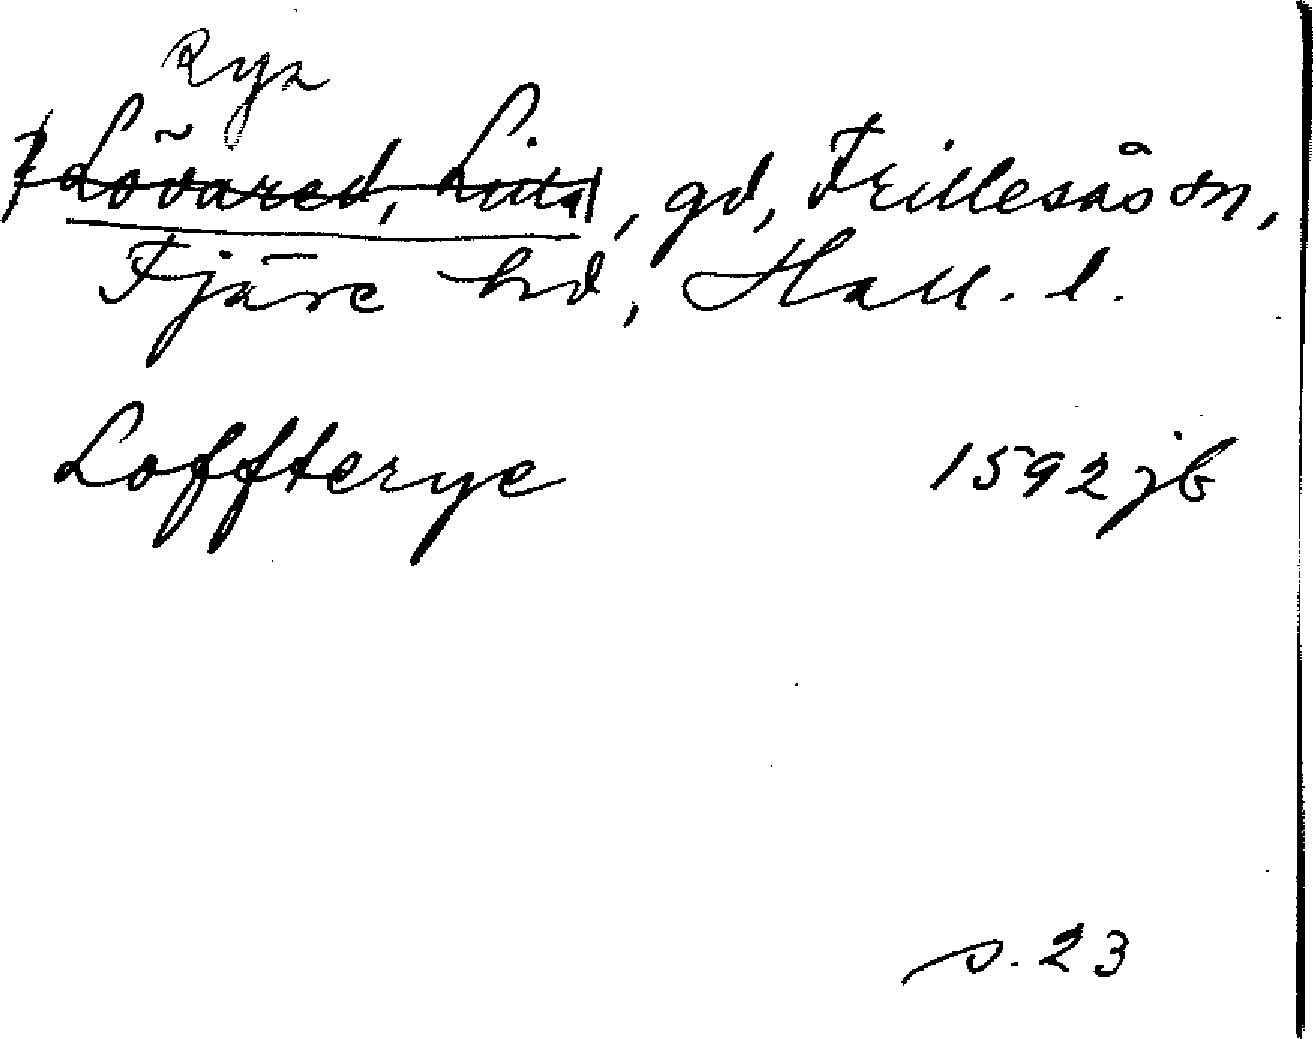 Rya
Lövared, Lilla, gd, Frillesås sn,
Fjäre hd, Hall. l.
Loffterye 1592 jb
s. 23